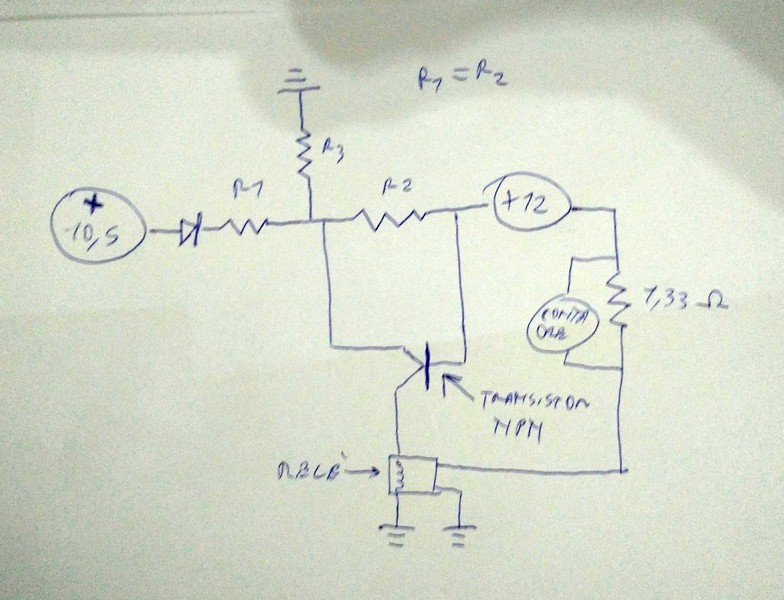 R1 = R2
R3
R1
R2
+
10,5
+12
1,33 Ω
CONTA
ORE
TRANSISTOR
NPN
RELÈ